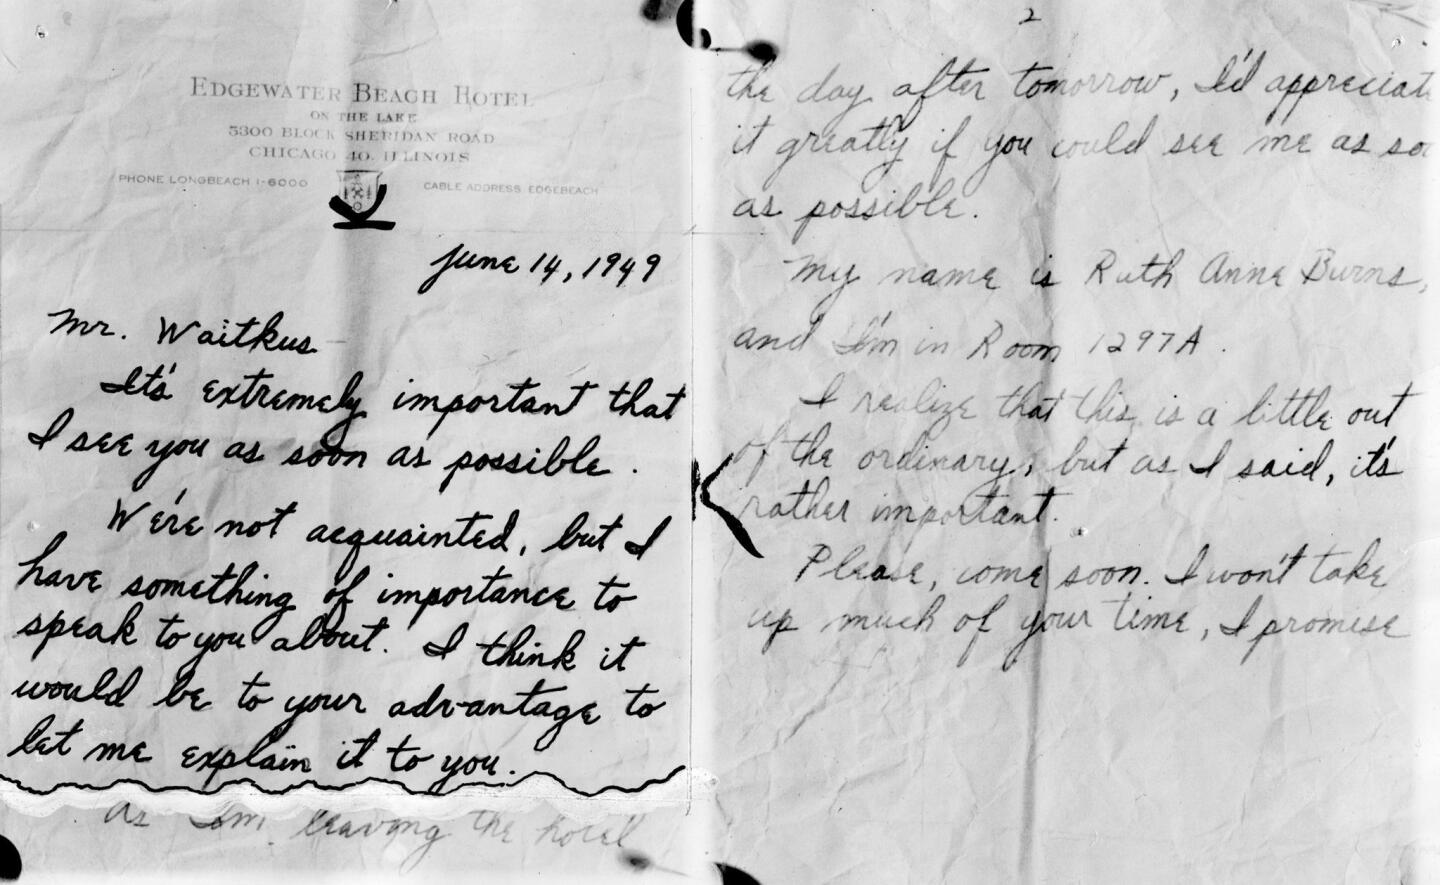 EDGEWATER BEACH HOTEL
ON THE LAKE
5300 BLOCK SHERIDAN ROAD
CHICAGO 40, ILLINOIS
PHONE LONGBEACH 1-6000
CABLE ADDRESS EDGEBEACH
June 14, 1949
Mr. Waitkus
It's extremely important that
I see you as soon as possible.
We're not acquainted, but I
have something of importance to
speak to you about. I think it
would be to your advantage to
let me explain it to you.
As I'm leaving the hotel
2
the day after tomorrow, I'd appreciate
it greatly if you could see me as soon
as possible.
My name is Ruth Anne Burns,
and I'm in Room 1297A.
I realize that this is a little out
of the ordinary, but as I said, it's
rather important.
Please, come soon. I won't take
up much of your time, I promise